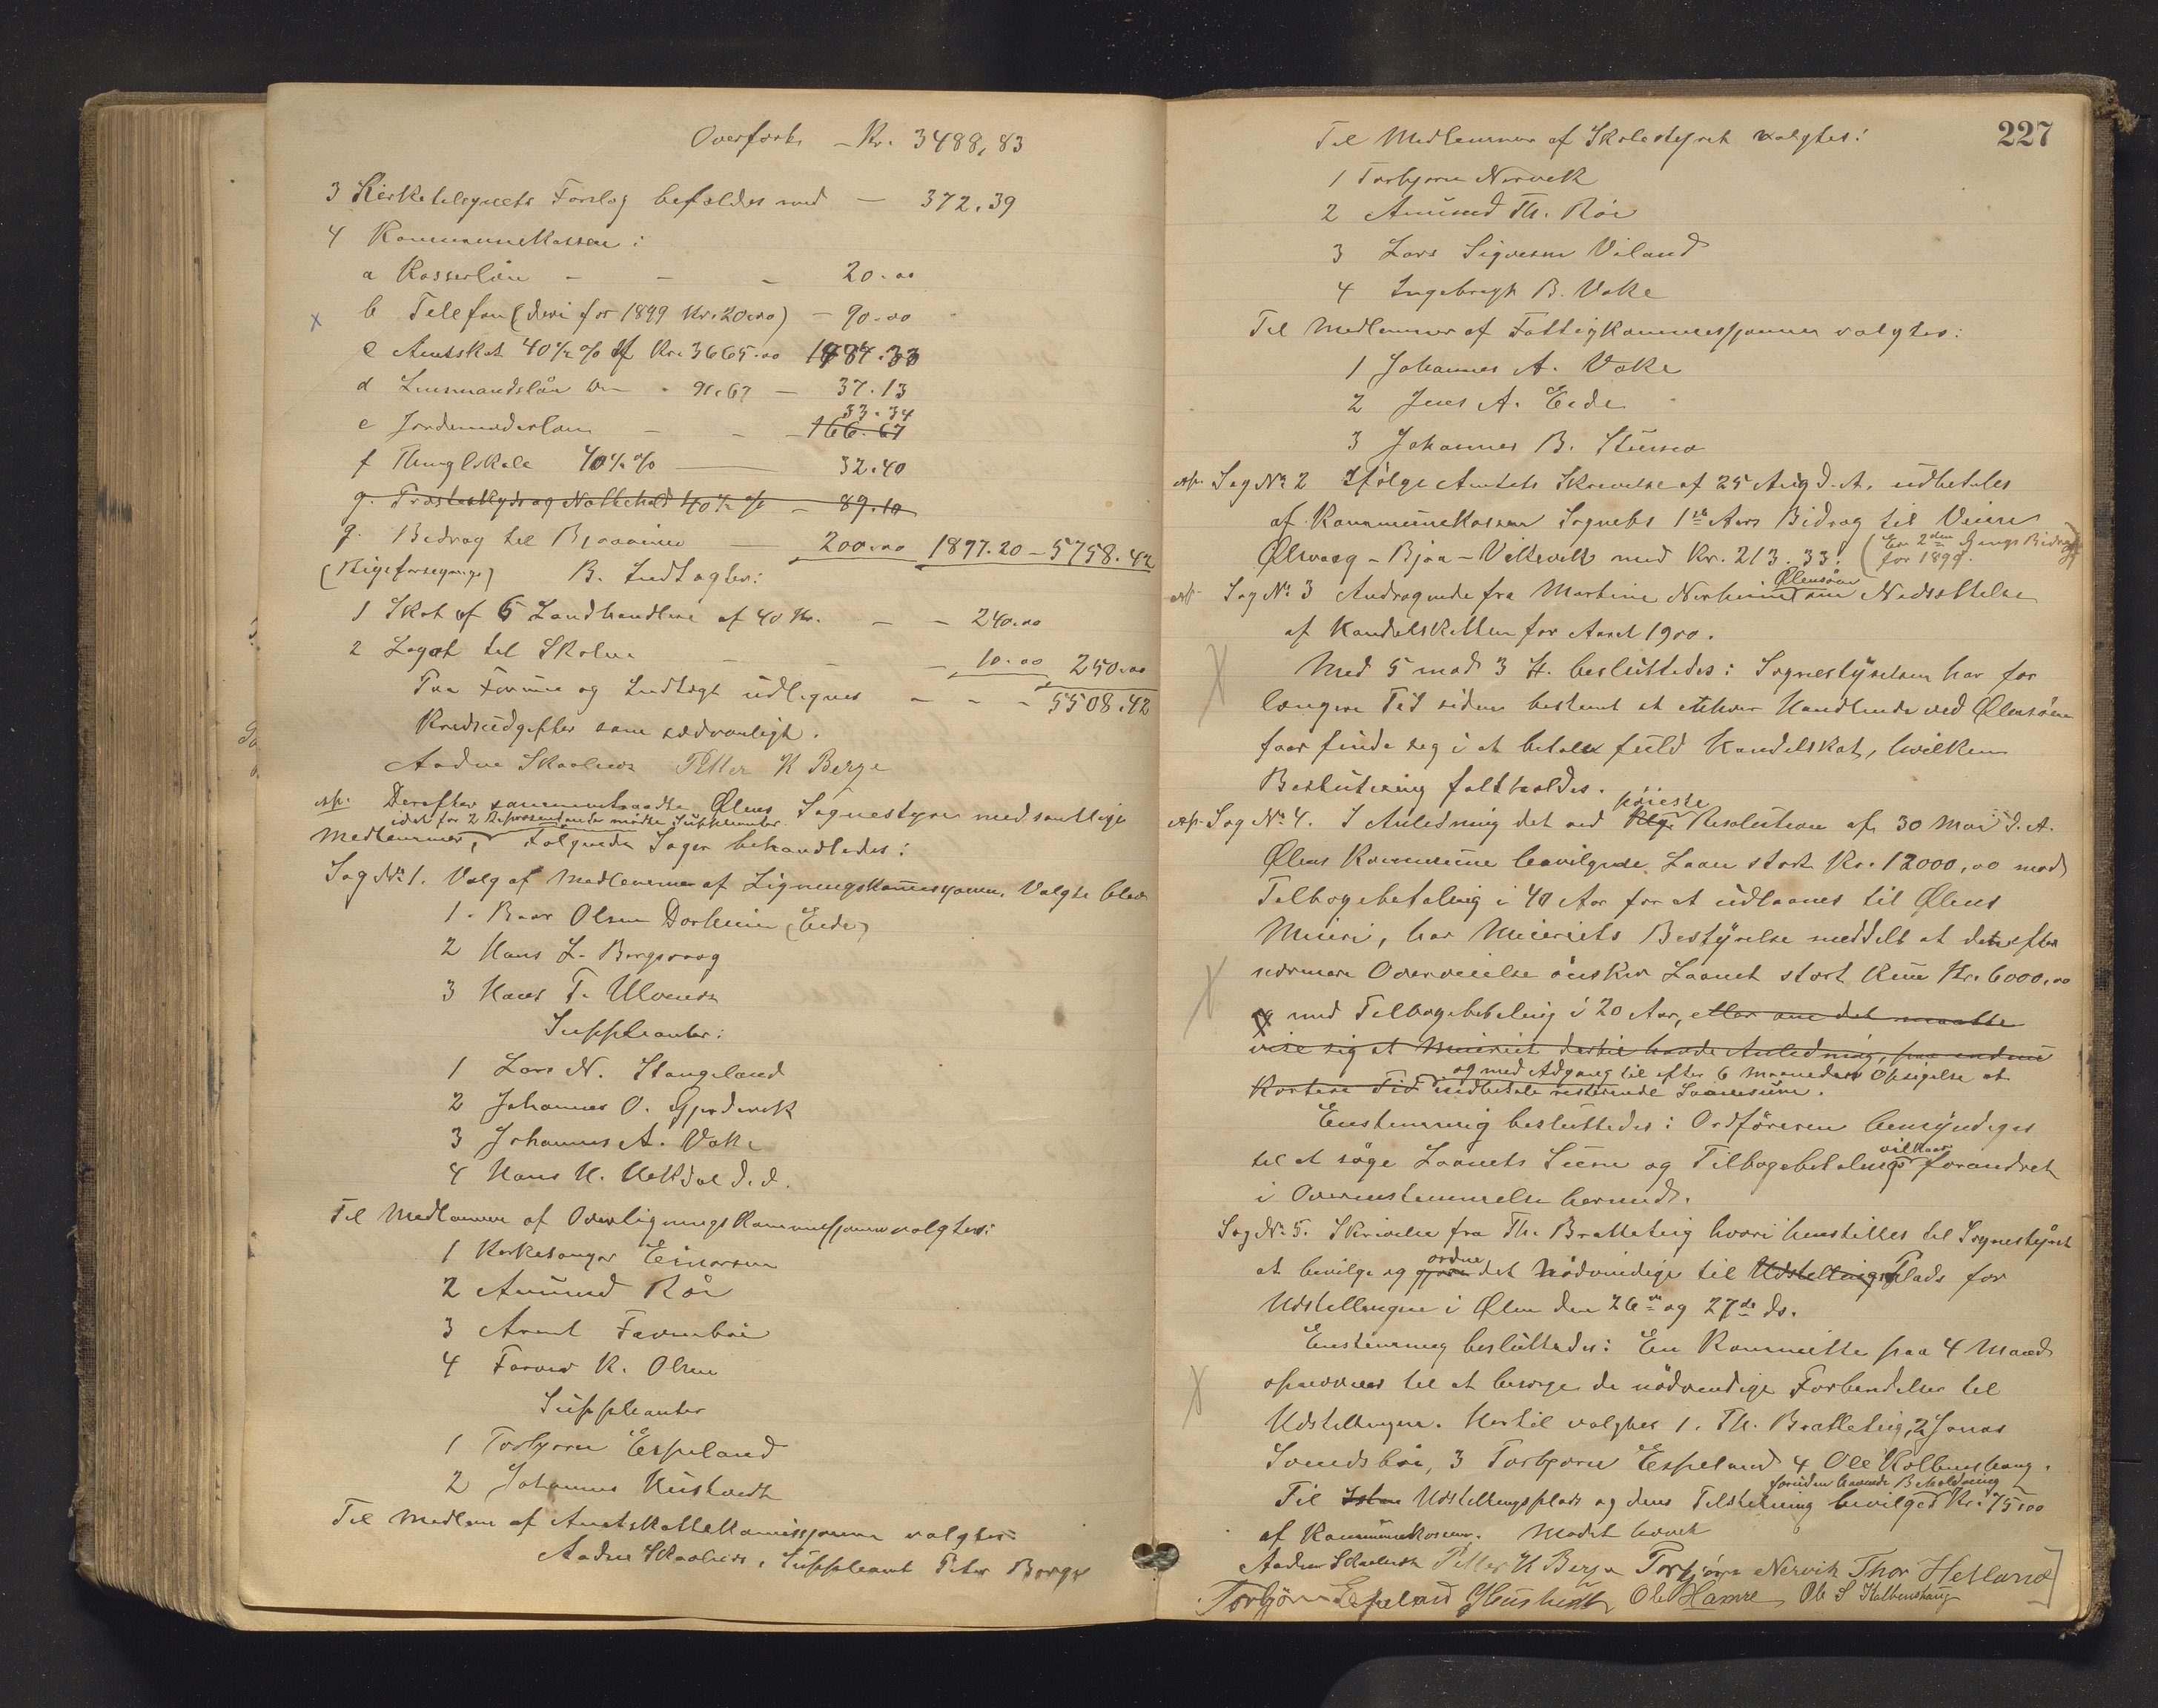 Overført – Kr. 3488,83
3 Kirketilsynets Forslag befaldes med – 372.39
4 Kommunekassen:
a Kasserløn – – – 20.00
x b Telefon (deri for 1899 Kr. 20.00) – 90.00
c Amtskat 40½ % af Kr. 3665.00 1484.33
d Lensmandsløn do – 91.67 – 37.13
33.34
e Jordemoderløn – – – 166.67
f Thinglokale 40½ % – 32.40
g. Præsteskyds og Nattehold 40½ % – 89.10
g. Bidrag til – 200.00 1897.20 – 5758.42
B. Indtægter:
1 Skat af 6 Landhandlere af 40 Kr. – – 240.00
2 Legat til Skolen – – – 10.00 250.00
Paa Formue og Indtægt udlignes – – – 5508.42
Kredsudgifter som sædvanligt.
Aadne Skaalnes Peter K Berge
exp. Derefter sammentraadte Ølens Sognestyre med samtlige
idet for 2 Repræsentanter mødte Suppleanter
Medlemmer, følgende Sager behandledes:
Sag No 1. Valg af Medlemmer af Ligningskommissjonen. Valgte blev
1. Baar Olsen Dorheim (Eide)
2 Hans L. Bergsvaag
3 Hans T. Ulvenes
Suppleanter:
1 Lars N. Stangeland
2 Johannes O. Gjerdevik
3 Johannes A. Vake
4 Hans H. Hetdal d.d.
Til Medlemmer af Overligningskommissjonen valgtes:
1 Kirkesanger Einarsen
2 Amund Røe
3 Arent
4 K. Olsen
Suppleanter
1 Torbjørn Espeland
2 Johannes Hustvedt
Til Medlem af Amtskattekommissjonen valgtes
Aadne Skaalnes, Suppleant Peter Berge
227
Til Medlemmer af Skolestyret valgtes:
1 Torbjørn Nervik
2 Amund Th. Røe
3 Lars Sigvesen Viland
4 Ingebregt B. Vake
Til Medlemmer af Fattigkommissjonen valgtes:
1 Johannes A. Vake
2 Jens A. Eide
3 Johannes B. Stueso
exp. Sag No 2 Ifølge Amtets Skrivelse af 25 Aug d.A. udbetales
af Kommunekassen Sognets 1ste Aars Bidrag til Veien
Ølsvaag – Bjoa – Vikevik med Kr. 213.33. (Er 2den Gangs Bidrag
for 1899.
exp. Sag No 3 Andragende fra Martin Nerheim Ølensøen om Nedsættelse
af Handelskatten for Aaret 1900.
Med 5 mod 3 St. besluttedes: Sognestyrelsen har for
længere Tid siden bestemt at enhver Handlende ved Ølensøen
faar finde seg i at betale fuld Handelskat, hvilken
Beslutning fastholdes.
høieste
exp. Sag No 4. I Anledning det ved Kgl. Resolution af 30 Mai d.A.
Ølens Kommune bevilgede Laan stort Kr. 12000,00 mod
Tilbagebetaling i 40 Aar for at udlaanes til Ølens
Meieri, har Meieriets Bestyrelse meddelt at det efter
nærmere Overveielse ønsker Laanet stort kun Kr. 6000,00
og med Tilbagebetaling i 20 Aar, eller om det maatte
vise sig at Meieriet dertil havde Anledning, paa endnu
og med Adgang til efter 6 Maaneders Opsigelse at
kortere Tid indbetale resterende Laanesum.
Enstemmig besluttedes: Ordføreren bemyndiges
vilkaar
til at søge Laanets Sum og Tilbagebetalings forandret
i Overenstemmelse hermed.
Sag No 5. Skrivelse fra Th. Bratteteig hvori henstilles til Sognestyret
ordne
at bevilge og gjøre det Nødvendige til Udstillings Plads for
Udstillingen i Ølen den 26de og 27de ds.
Enstemmig besluttedes: En Kommitte paa 4 Mand
opnævnes til at besorge de nødvendige Forberedelser til
Udstillingen. Hertil valgtes 1. Th. Bratteteig, 2 Jonas
Svendsbøe, 3 Torbjørn Espeland 4 Ole Kolbenshaug.
foruden havende Beholdning
Til Udstillingsplads og dens Tilstelning bevilges Kr. 75.00
af Kommunekassen. Mødet hævet
Aadne Skaalnes Peter K Berge Torbjørn Nervik Thor Hetland
Torbjørn Espeland J Hustvedt Ole Hamre Ole S Kolbenshaug